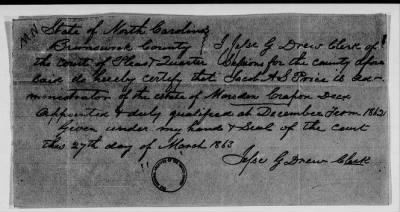 MN
State of North Carolina
Brunswick County } I Jesse G Drew Clerk of
the court of Pleas & Quarter Sessions for the county afore
said do hereby certify that Jacob A S Price is Ad-
ministrator of the estate of Decd
Appointed & duly qualified at December Term 1862
Given under my hand & Seal of the court
this 27th day of March 1863
Jesse G Drew Clerk